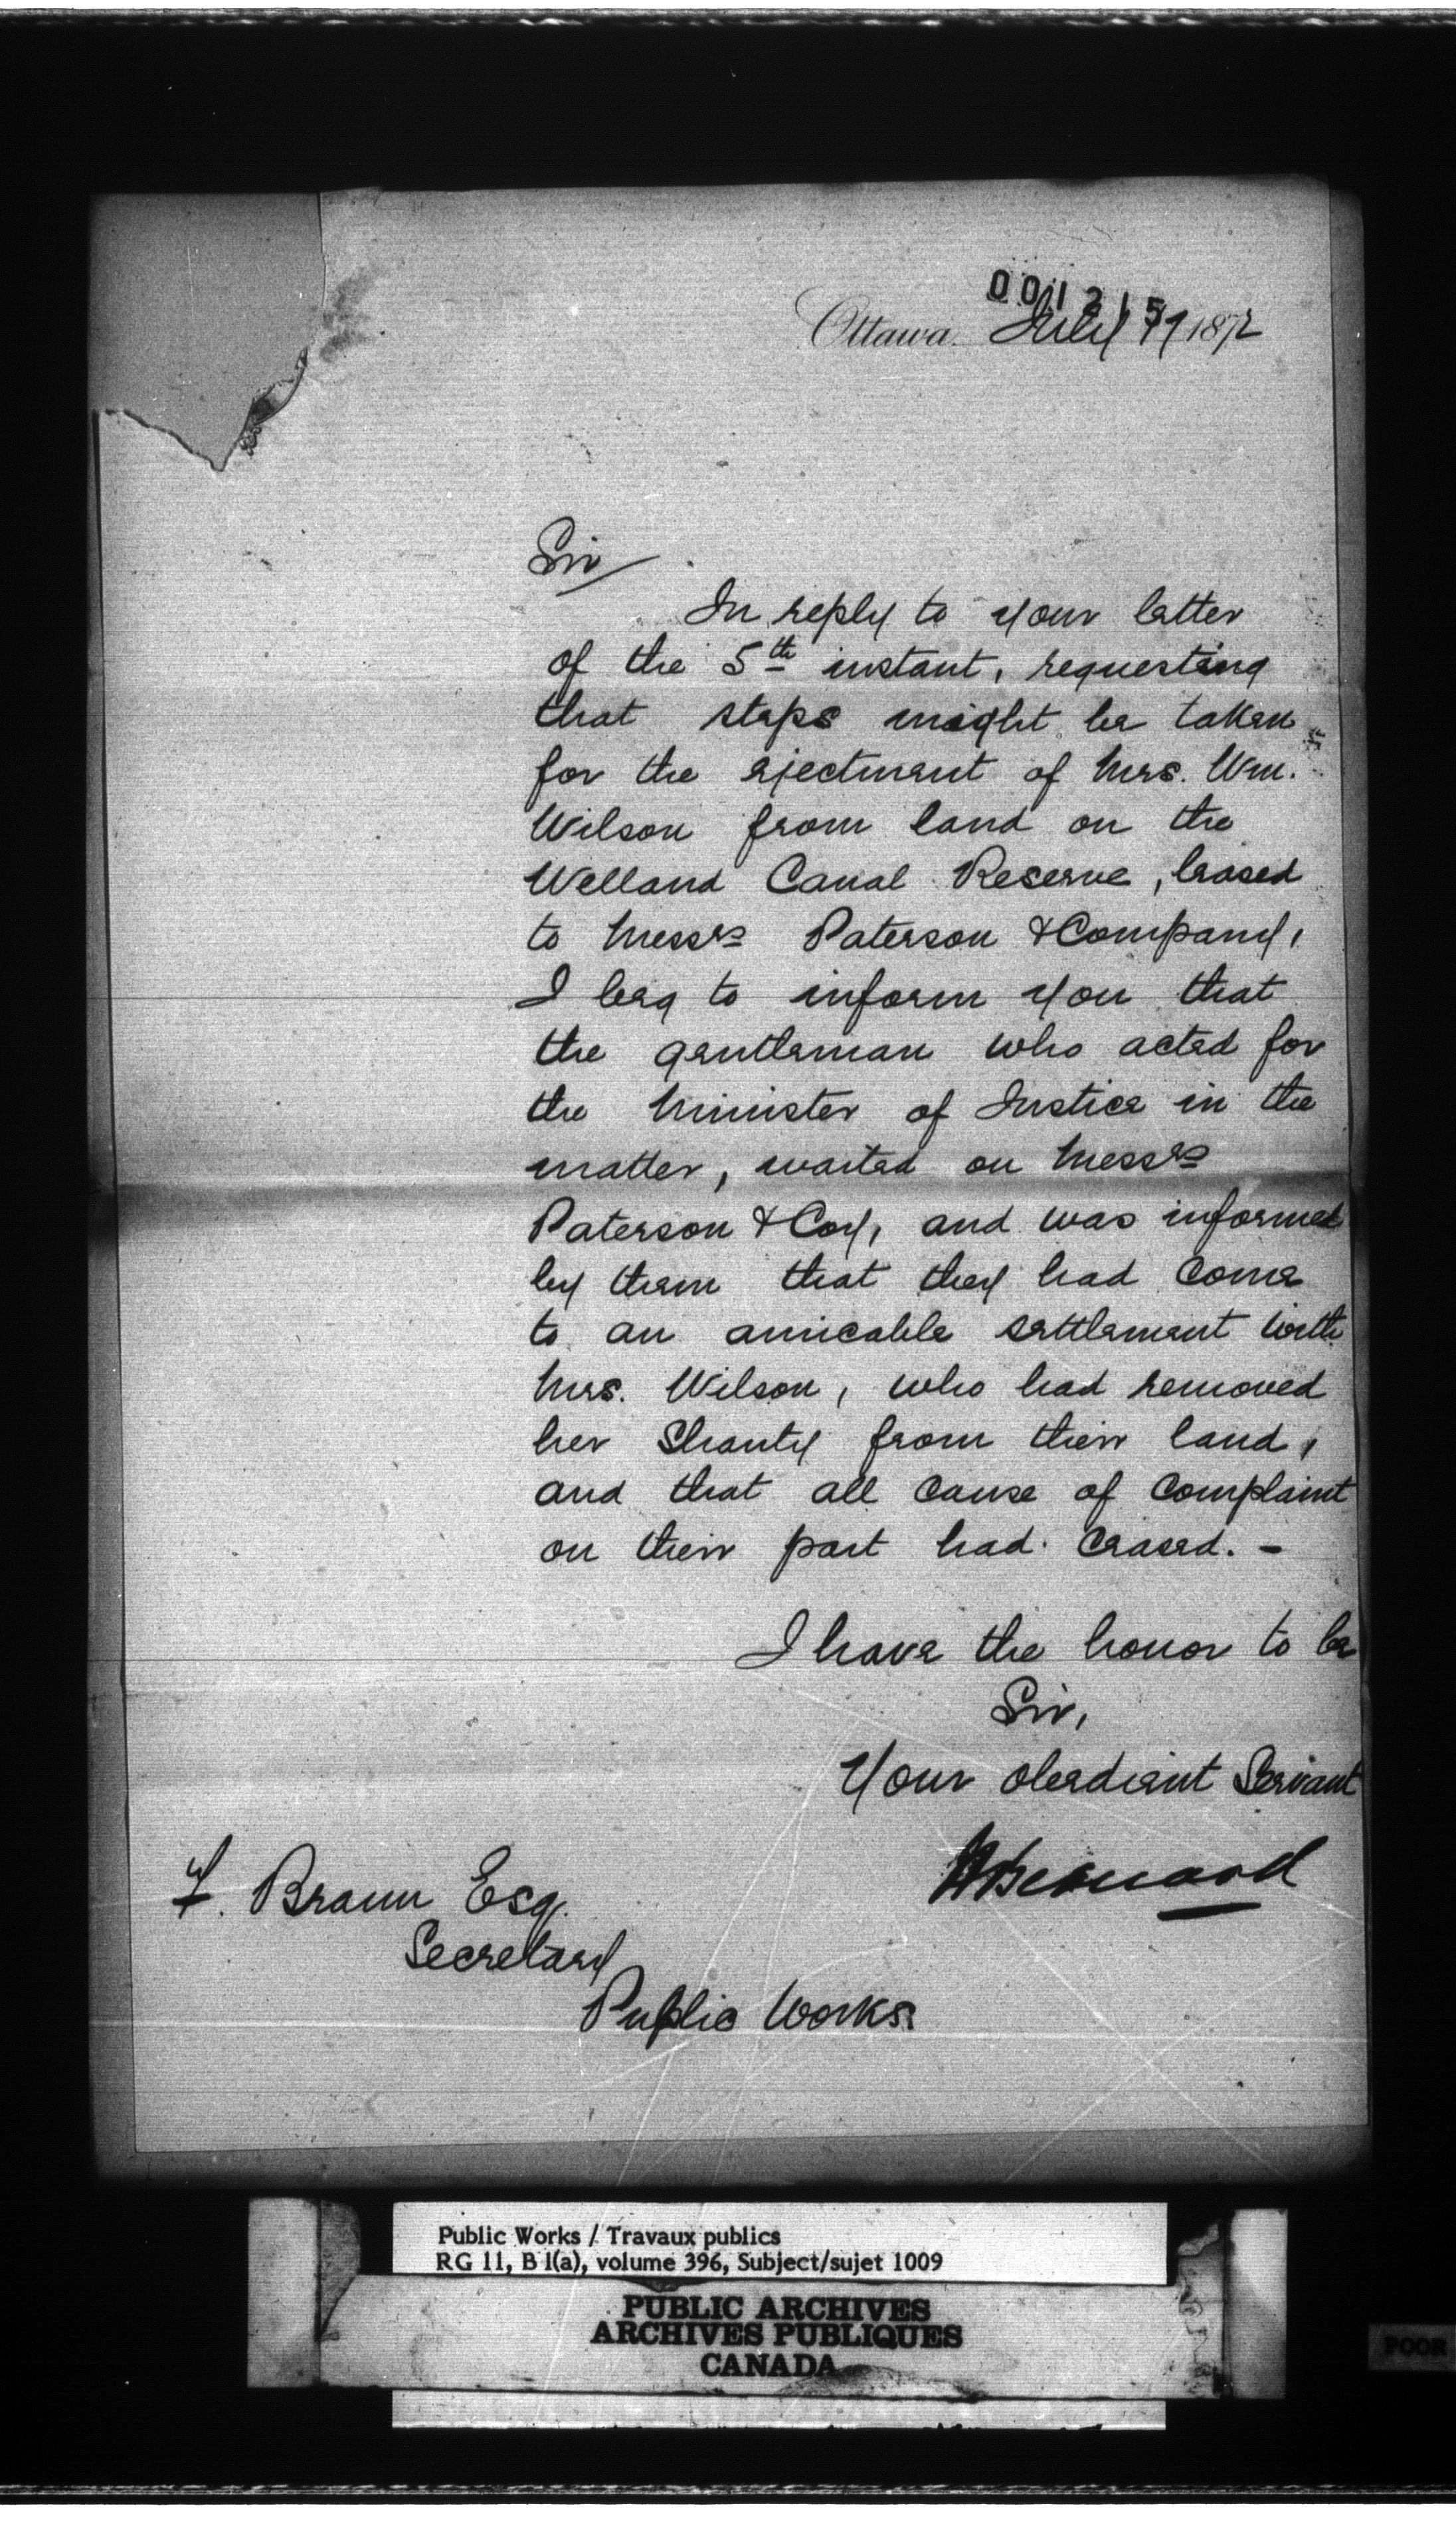 001215
Ottawa. July 1872
Sir
In reply to your letter
of the 5th instant, requesting
that steps might be taken
for the ejectment of Mrs. Wm.
Wilson from land on the
Welland Canal Reserve, leased
to Messrs Paterson & Company,
I beg to inform you that
the gentleman who acted for
the Minister of Justice in the
matter, waited on Messrs
Paterson & Coy, and was informed
by them that they had come
to an amicable settlement with
Mrs. Wilson, who had removed
her Shanty from their land,
and that all cause of complaint
on their part had ceased. -
I have the honor to be
Sir,
Your obedient Servant
H Bernard
F. Braun Esq.
Secretary
Public Works.
Public Works / Travaux publics
RG 11, B 1(a), volume 396, Subject/sujet 1009
PUBLIC ARCHIVES
ARCHIVES PUBLIQUES
CANADA
POOR